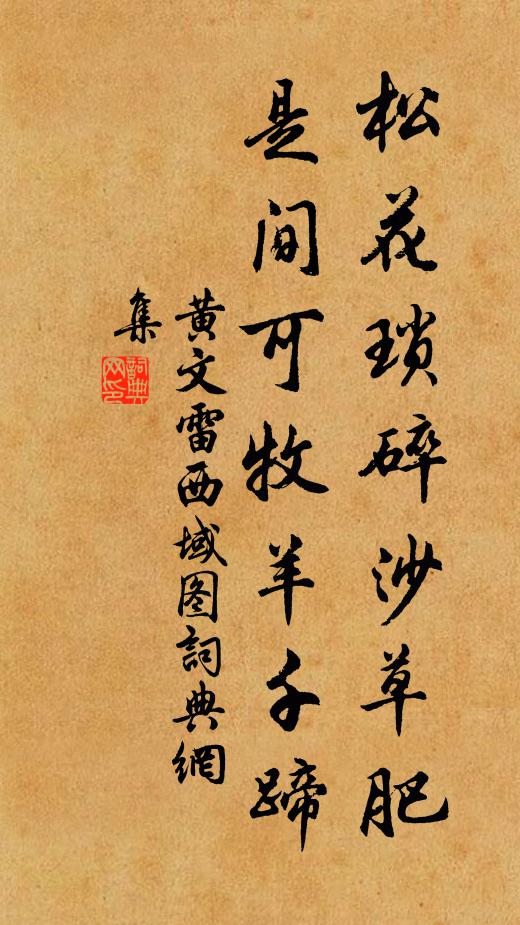 松花琐碎沙草肥
是间可牧羊千蹄
黄文雷西域图詞典網
集
詞典
网印